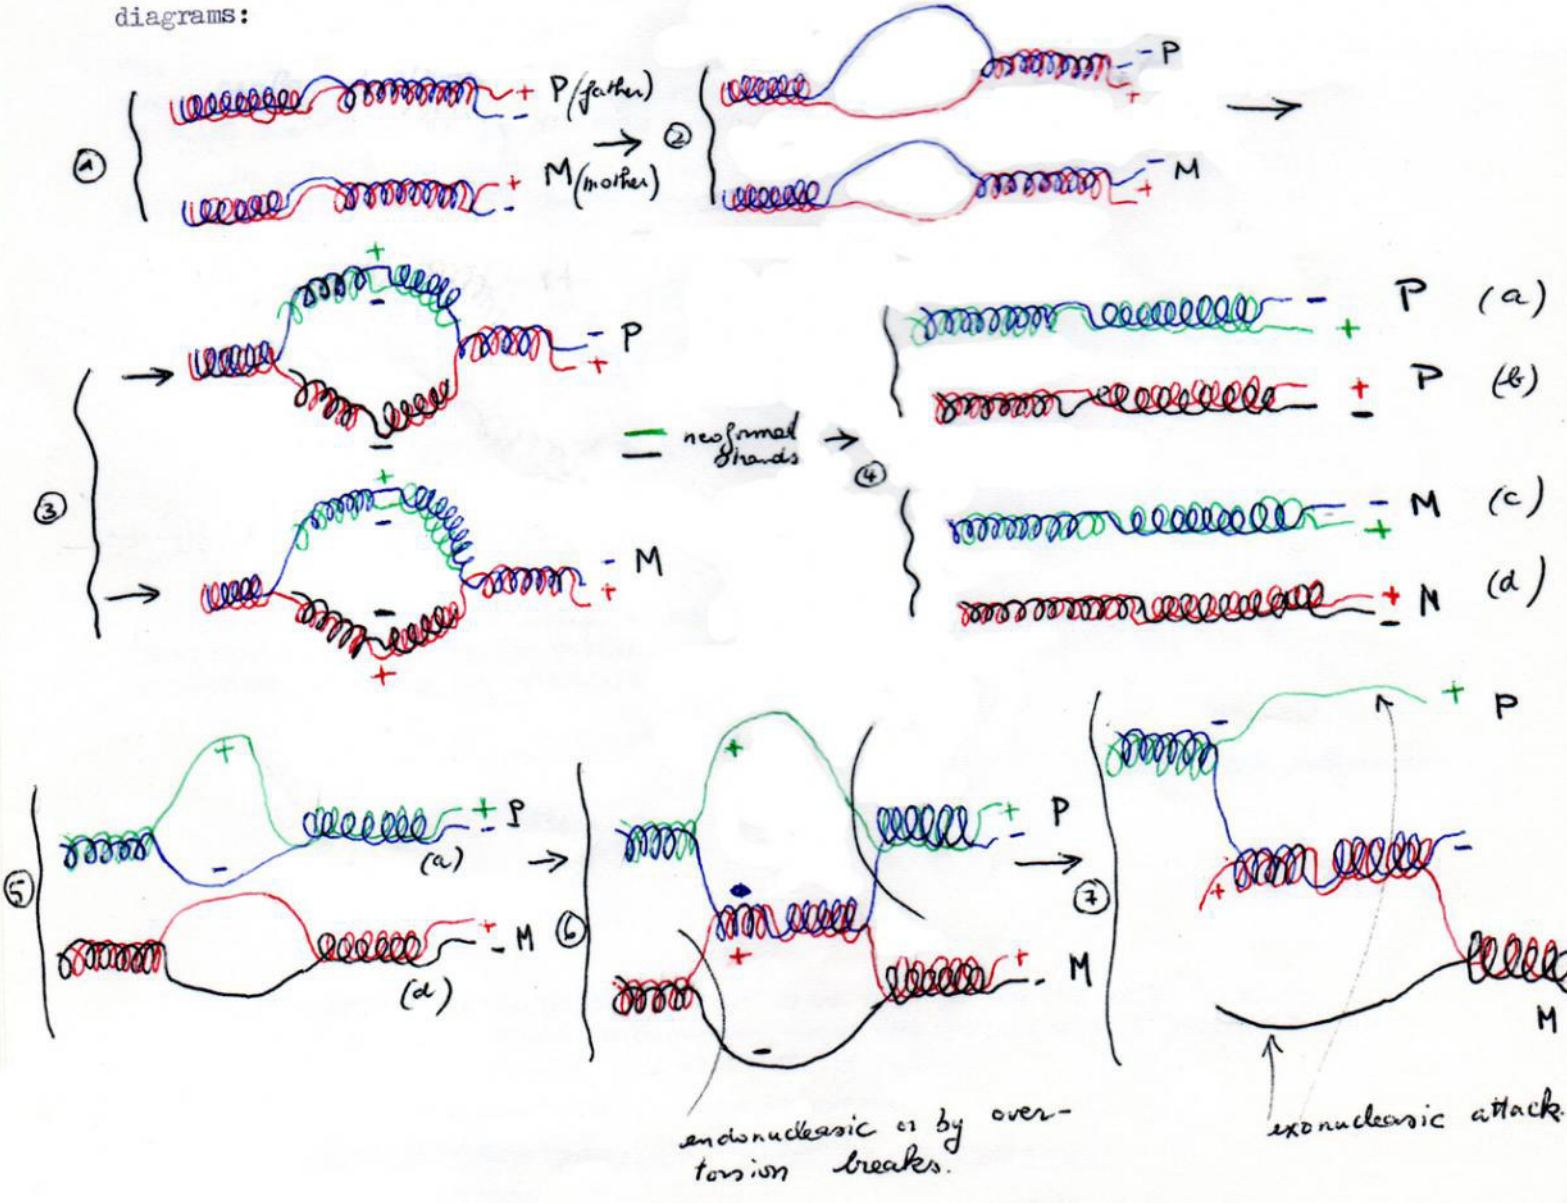 diagrams:
① + P (father)
-
M (mother)
+
-
→ ② - P
+
- M
+
→
③ →
+
-
- P
+
-
→
+
-
- M
+
-
+
= neoformed strands
→ ④
- P (a)
+
+ P (b)
-
- M (c)
+
+ M (d)
-
⑤
+
-
+ P
-
(a)
+
- M
(d)
→ ⑥
+
+ P
-
+
+
- M
-
→ ⑦
-
+ P
+
-
M
endonucleasic or by over-
torsion breaks.
exonucleasic attack.